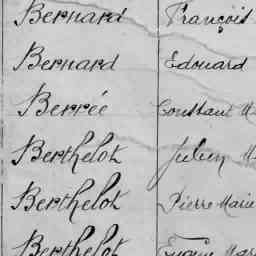 Bernard François
Bernard Edouard
Berrée Constant
Berthelot Julien
Berthelot Pierre Marie
Berthelot Eugène